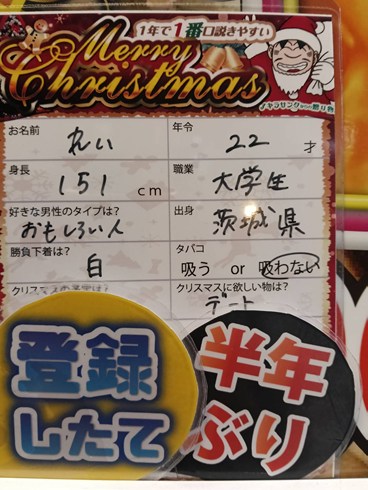 1年で1番口説きやすい
Merry
Christmas
お名前
れい
年令
22 才
身長
151 cm
職業
大学生
好きな男性のタイプは?
おもしろい人
出身
茨城県
勝負下着は?
白
タバコ
吸う or 吸わない
クリスマスに欲しい物は?
デート
登録
したて
半年
ぶり